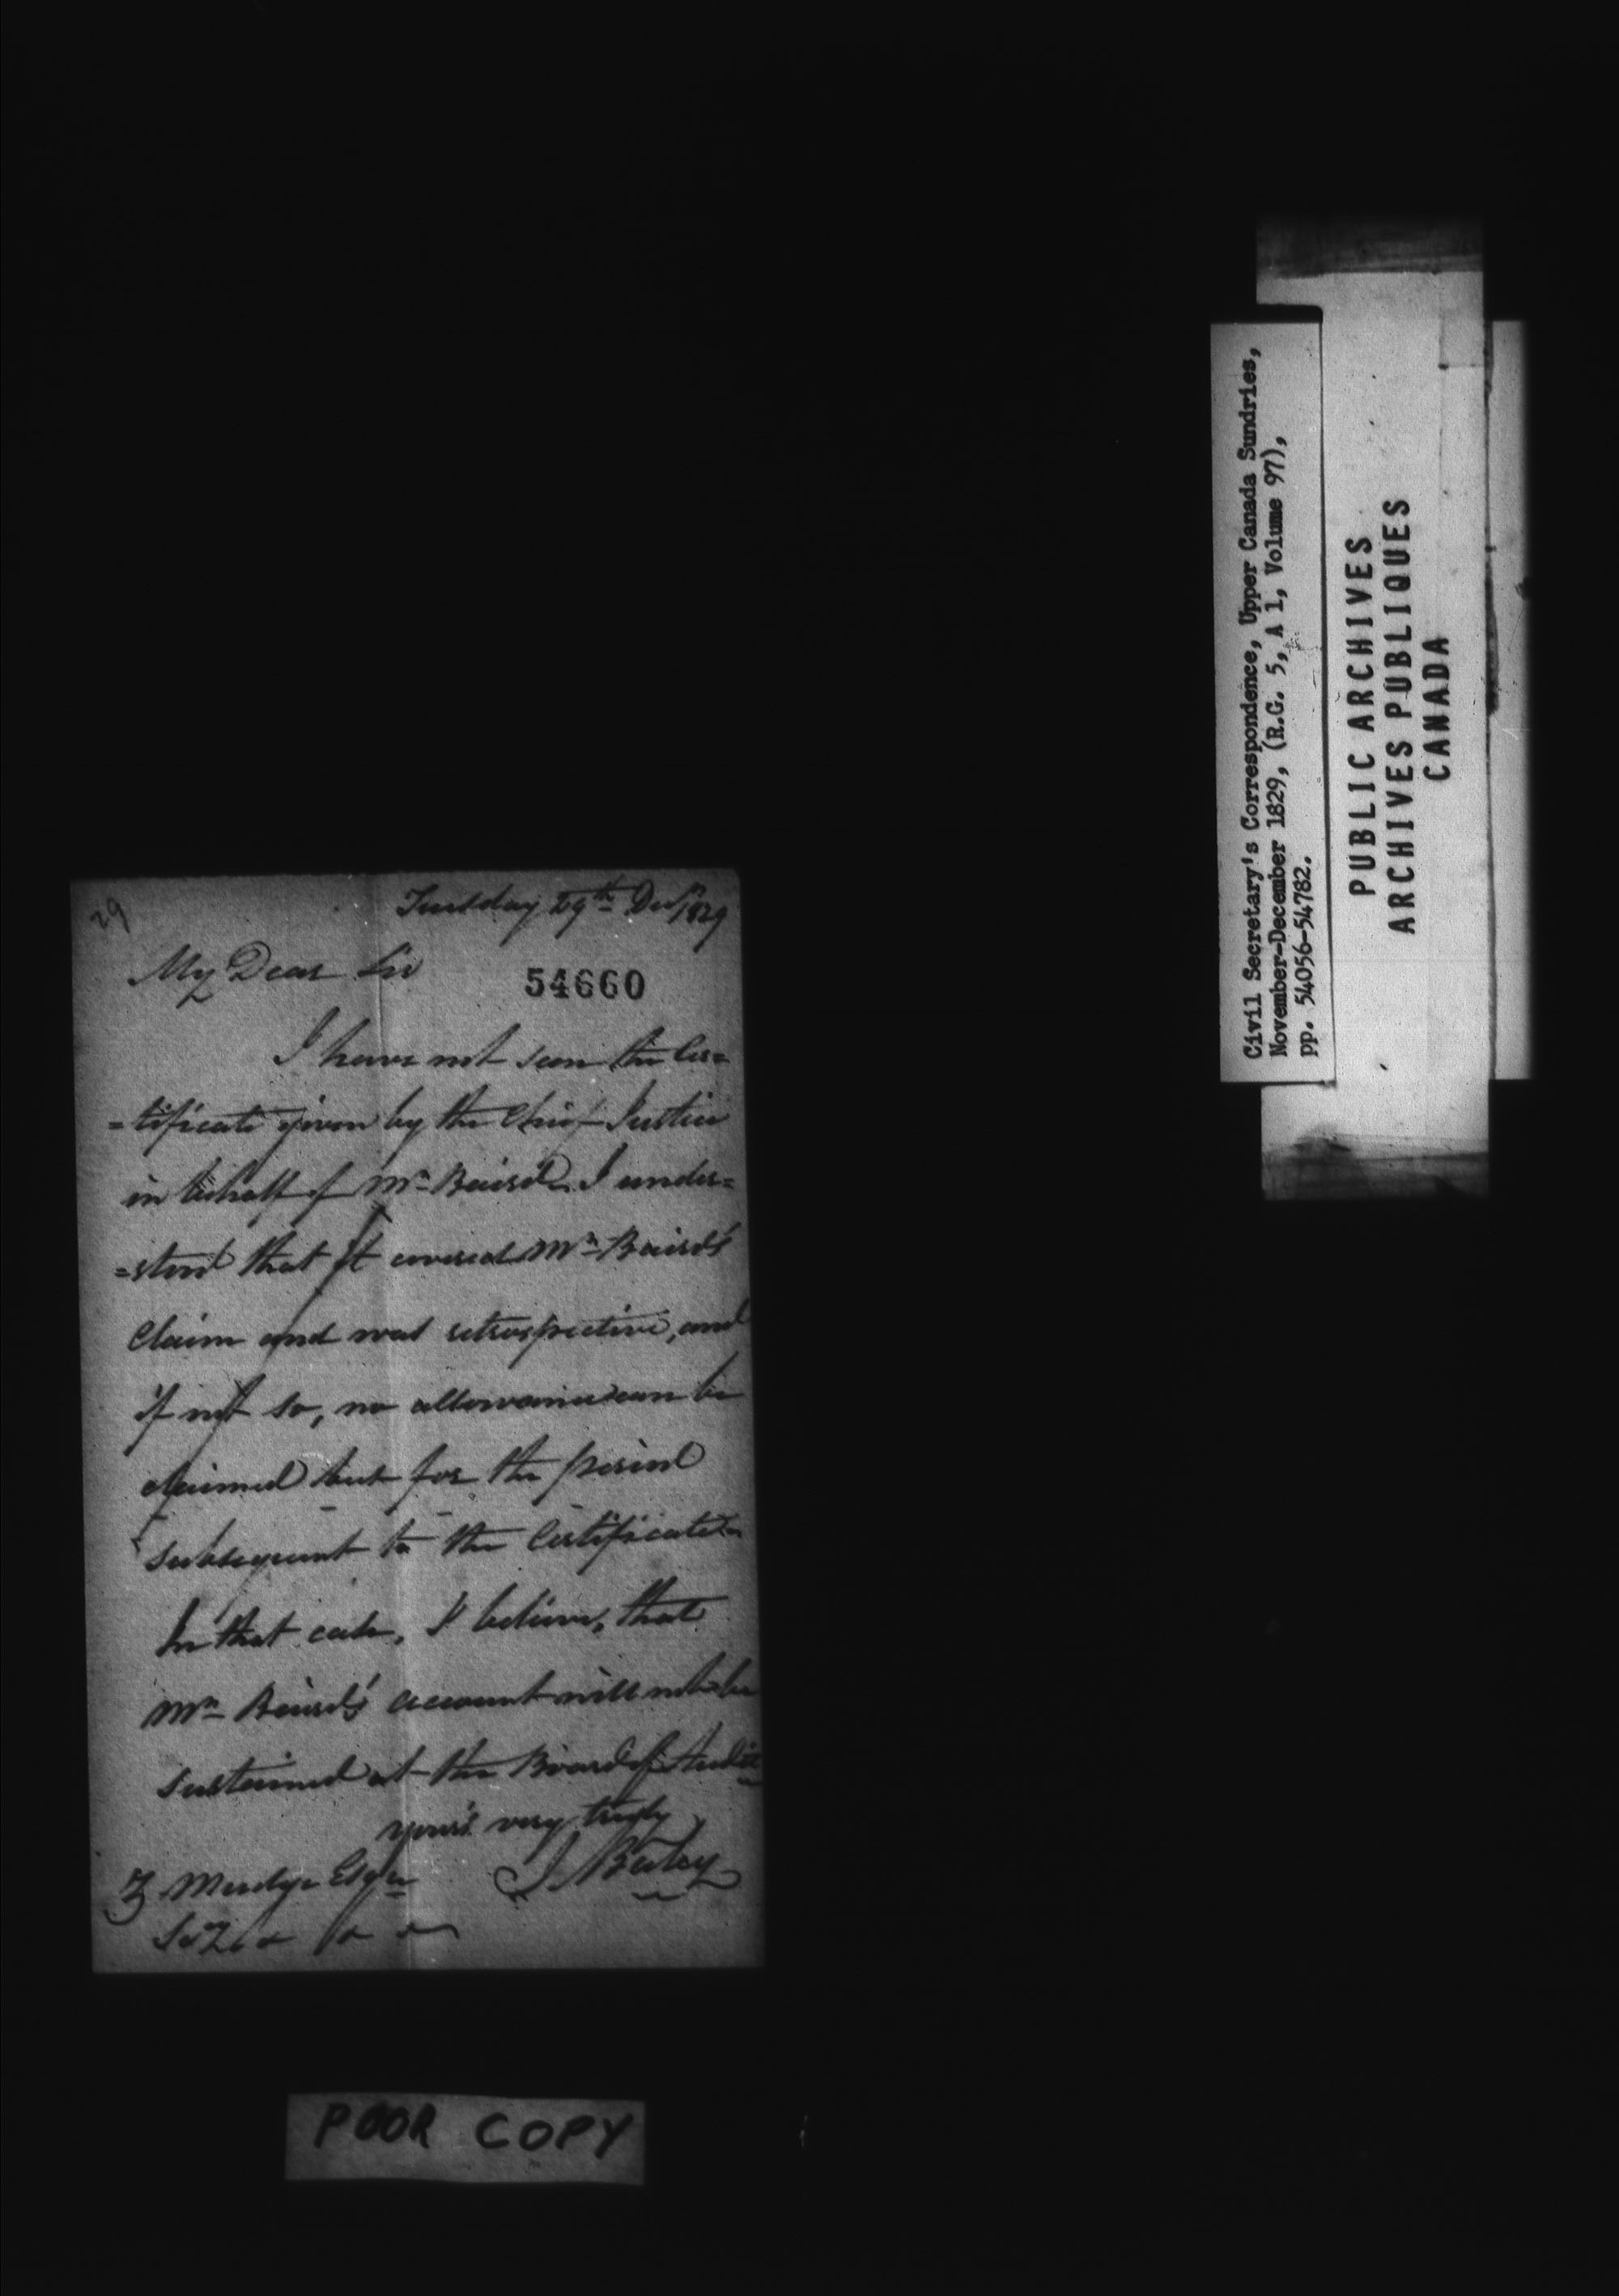 29
Tuesday 29th Decr 1829
My Dear Sir
54660
I have not seen the Cer=
=tificate given by the Chief Justice
in behalf of Mr Baird. I under=
=stood that it covered Mr Baird's
Claim and was retrospective, and
if not so, no allowance can be
claimed but for the period
subsequent to the Certificate
In that case, I believe, that
Mr Baird's account will not be
sustained at the Board of Audit
yours very truly
J. Baby
Z Mudge Esqr
POOR COPY
Civil Secretary's Correspondence, Upper Canada Sundries,
November-December 1829, (R.G. 5, A 1, Volume 97),
pp. 54056-54782.
PUBLIC ARCHIVES
ARCHIVES PUBLIQUES
CANADA